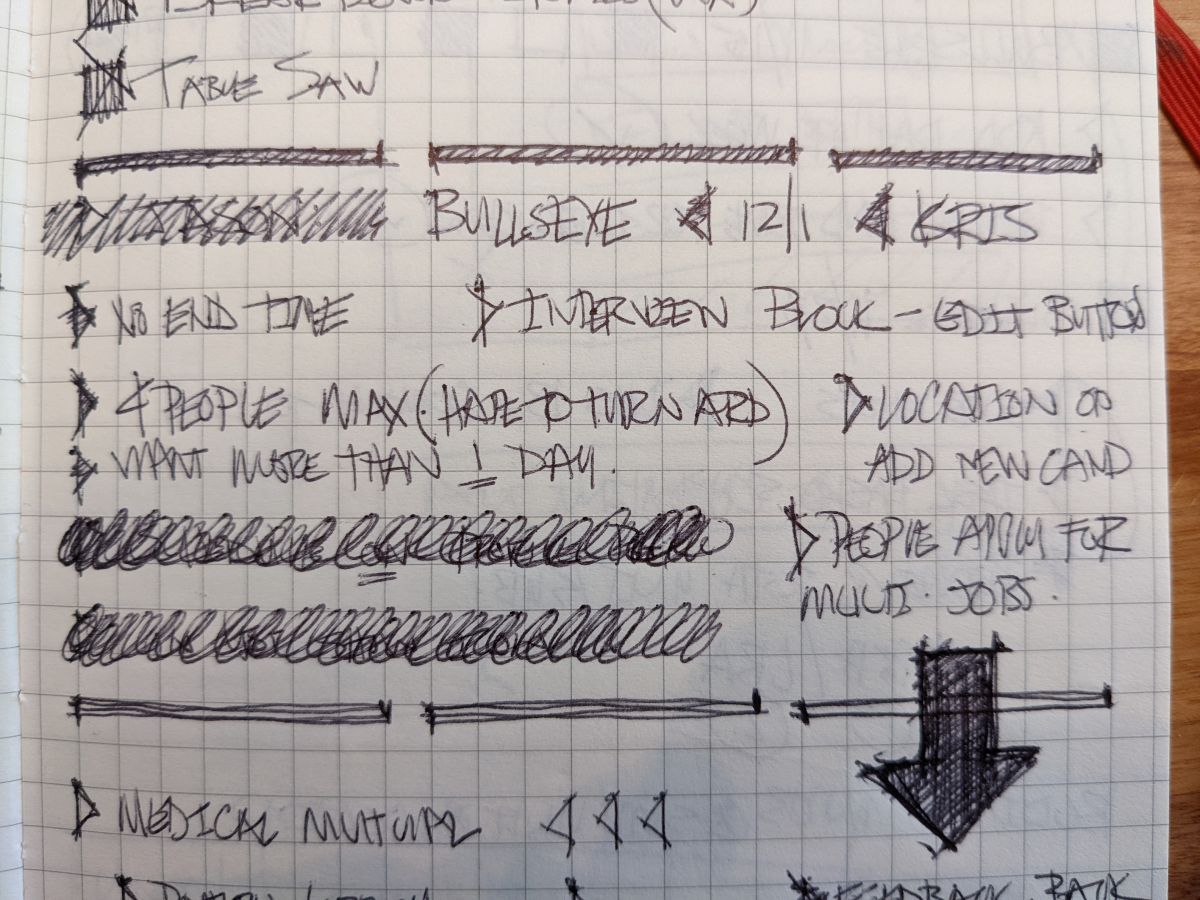 TABLE SAW
BULLSEYE 12/1 KRIS
NO END TIME
INTERVIEW BLOCK - EDIT BUTTON
4 PEOPLE MAX (HATE TO TURN ARD)
LOCATION OF
WANT MORE THAN 1 DAY.
ADD NEW CAND
PEOPLE APPLY FOR
MULTI. JOBS.
MEDICAL MUTUAL
FEEDBACK BACK